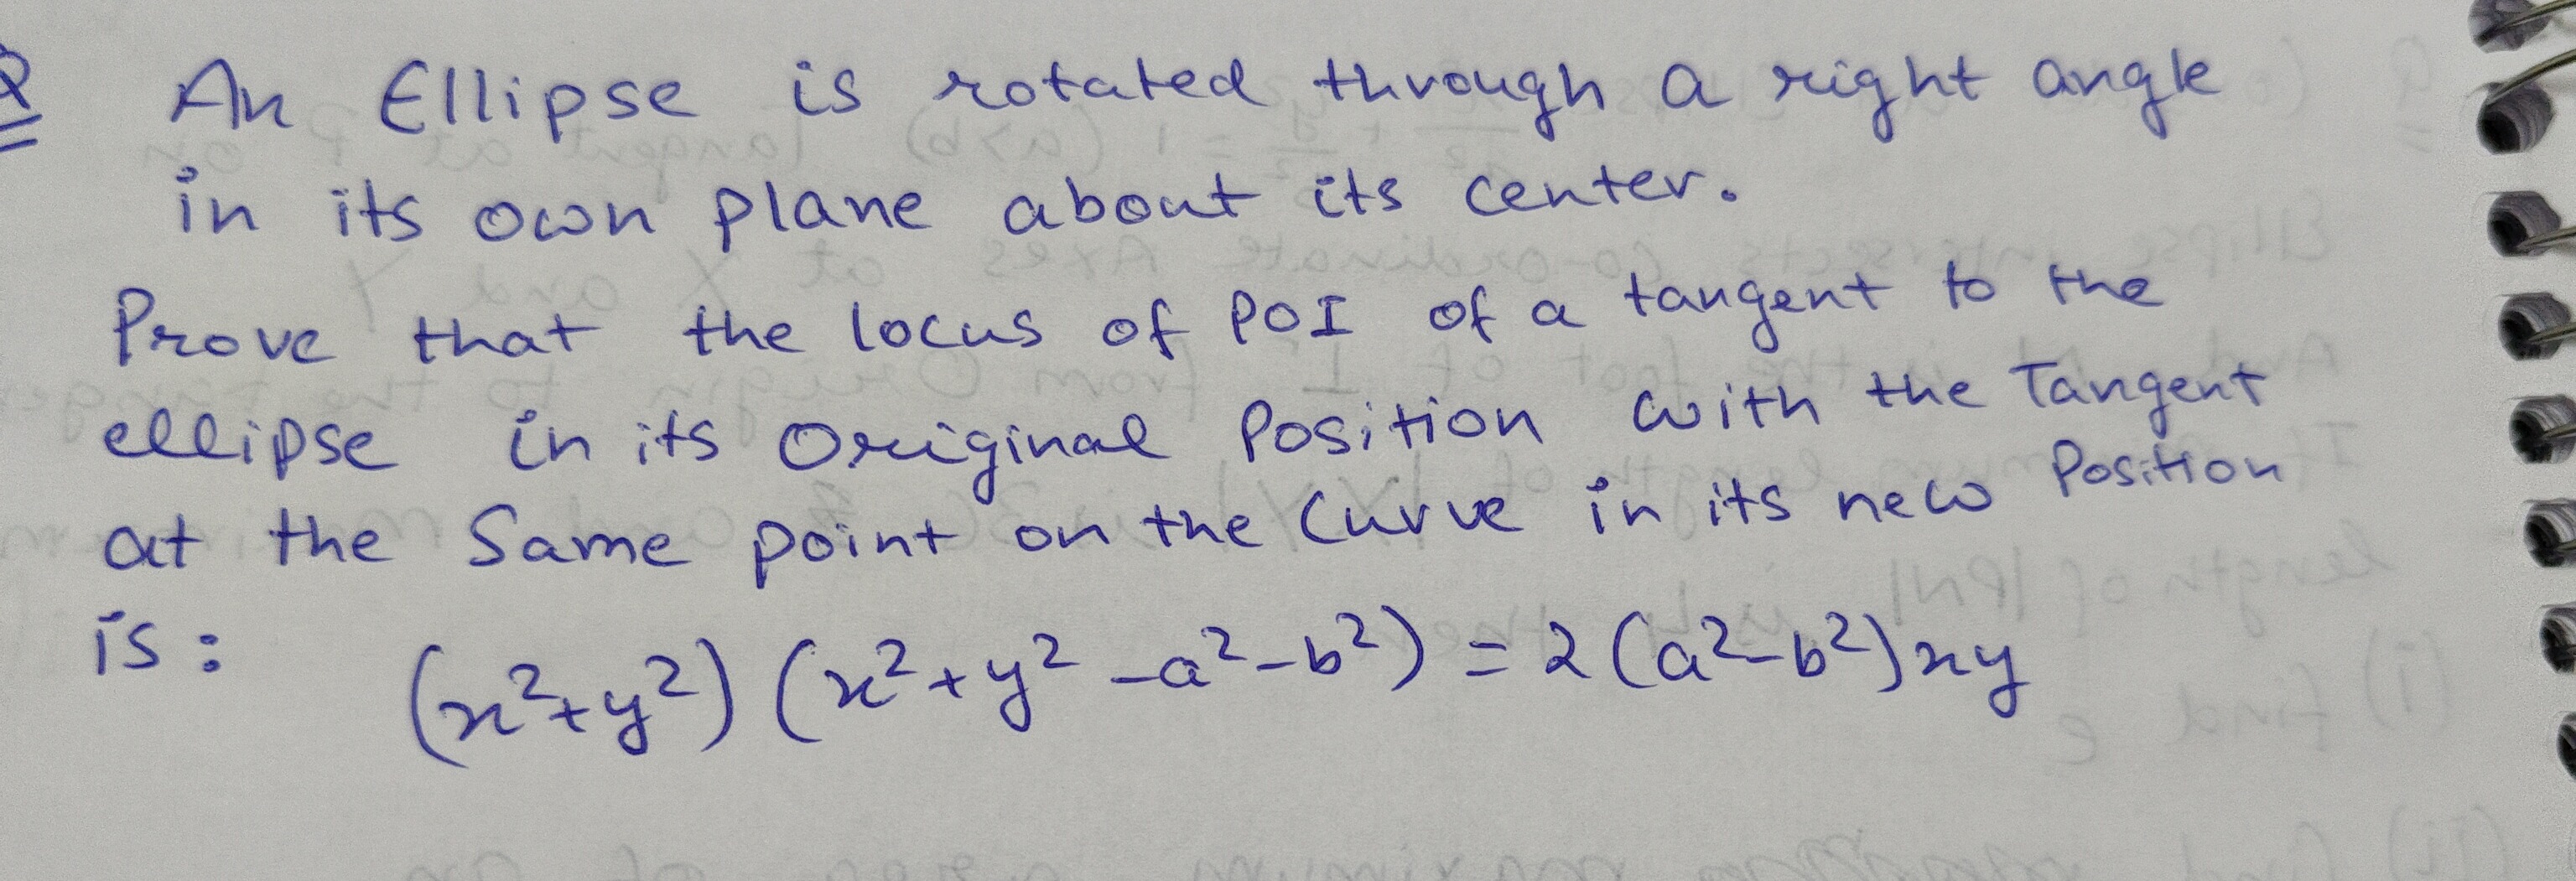 Q An Ellipse is rotated through a right angle
in its own plane about its center.
Prove that the locus of POI of a tangent to the
ellipse in its Original Position with the Tangent
at the Same point on the Curve in its new Position
is: (x²+y²) (x²+y²-a²-b²) = 2(a²-b²)xy